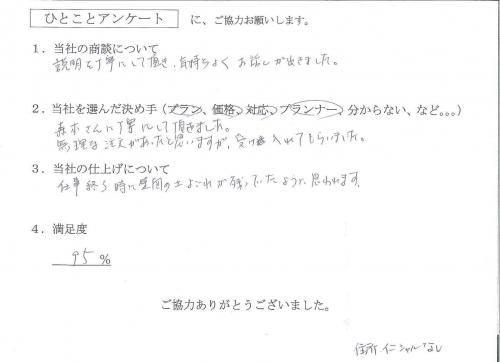 ひとことアンケート に、ご協力お願いします。
1．当社の商談について
説明を丁寧にして頂き、気持ちよくお話しが出来ました。
2．当社を選んだ決め手（プラン、価格、対応、プランナー、分からない、など。。。）
森本さんに丁寧にして頂きました。
無理な注文があったと思いますが、受け入れてもらいました。
3．当社の仕上げについて
仕事終る時に 土よごれが残っていたように思われます。
4．満足度
95 %
ご協力ありがとうございました。
住所 イニシャル なし